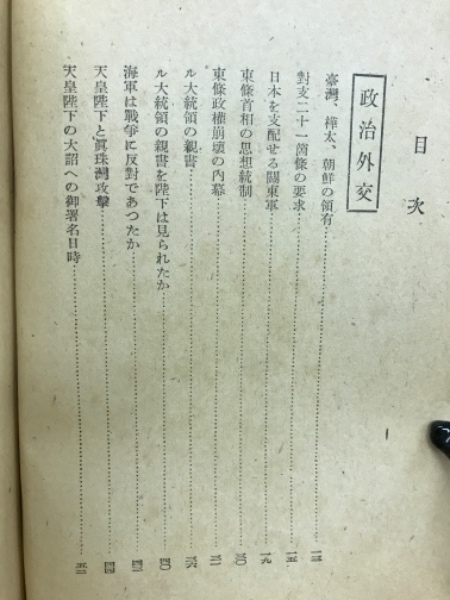 目次
政治外交
臺灣、樺太、朝鮮の領有……一三
對支二十一箇條の要求……一五
日本を支配せる關東軍……一九
東條首相の思想統制……三〇
東條政權崩壞の內幕……三一
ル大統領の親書……三六
ル大統領の親書を陛下は見られたか……四〇
海軍は戰爭に反對であつたか……四二
天皇陛下と眞珠灣攻擊……四四
天皇陛下の大詔への御署名日時……五二